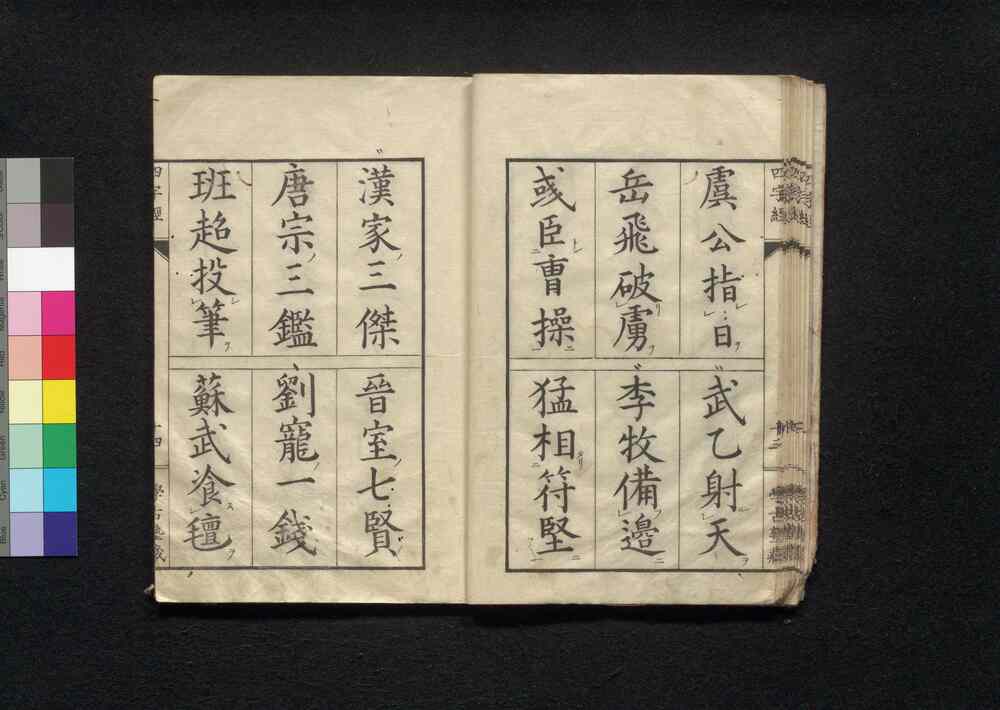 虞公指日
武乙射天
岳飛破虜
李牧備邊
彧臣曹操
猛相符堅
漢家三傑
晉室七賢
唐宗三鑑
劉寵一錢
班超投筆
蘇武飡氊
四字經